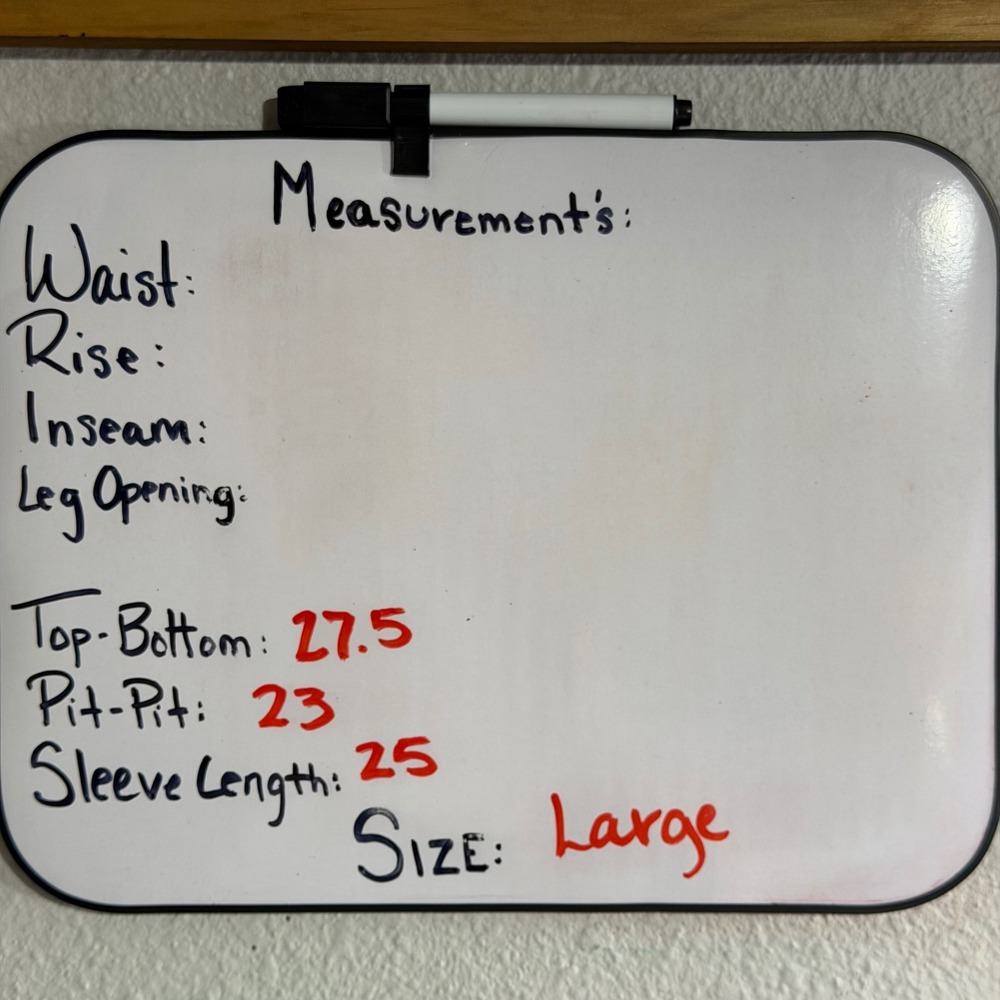 Measurement's:
Waist:
Rise:
Inseam:
Leg Opening:
Top-Bottom: 27.5
Pit-Pit: 23
Sleeve Length: 25
SIZE: Large